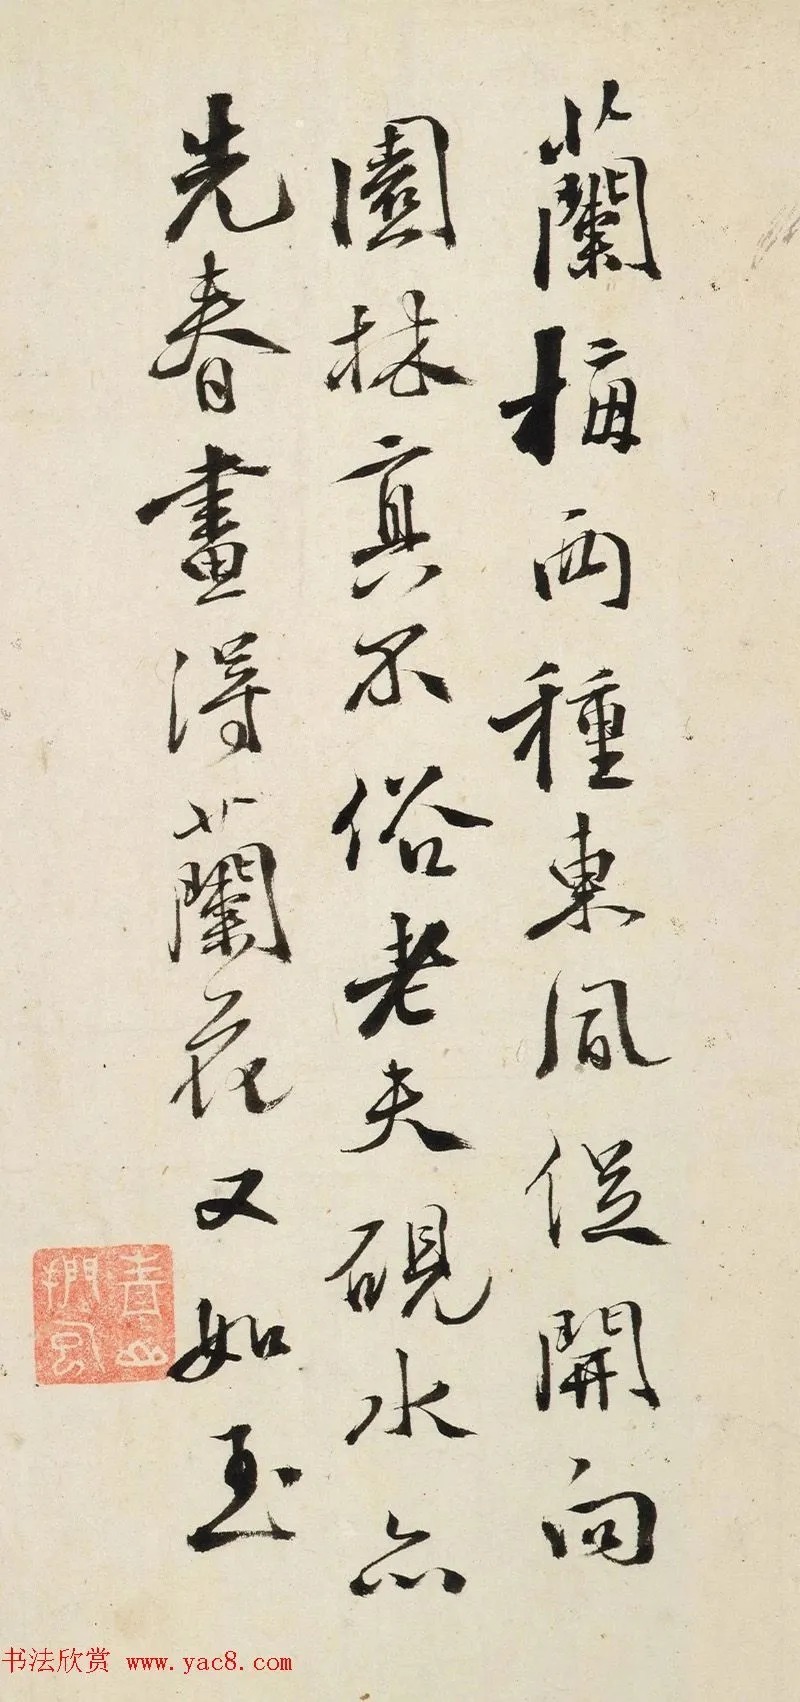 蘭梅兩種東風從開向
園林真不俗老夫硯水亦
先春畫得蘭花又如玉
书法欣赏 www.yac8.com